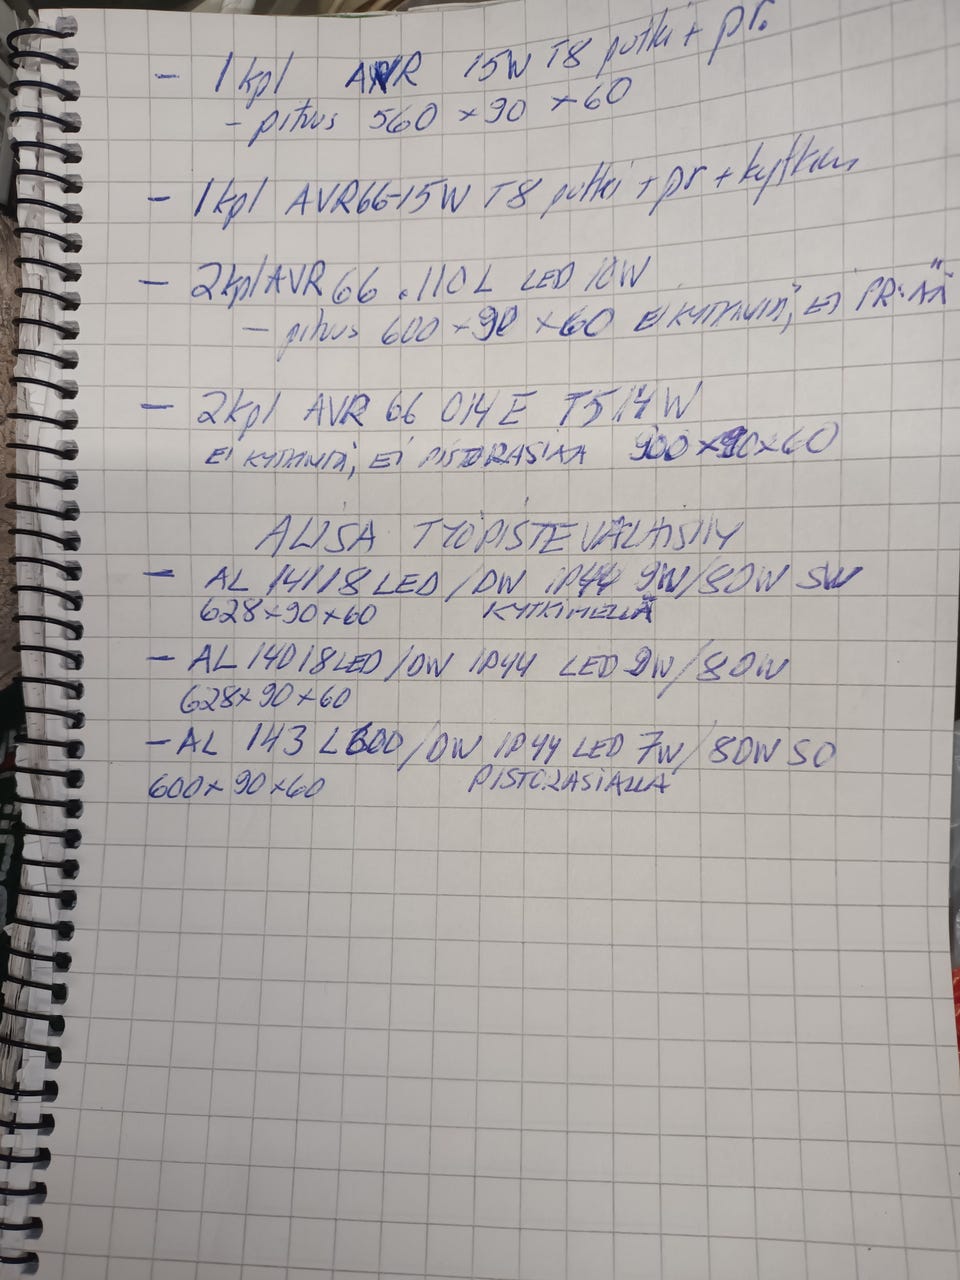 - 1kpl AVR 15W T8 putki + pr.
- pituus 560 x 90 x 60
- 1kpl AVR66-15W T8 putki + pr + kytkin
- 2kpl AVR 66.110L LED 10W
- pituus 600 x 90 x 60 EI KYTKINTÄ, EI PR:ÄÄ
- 2kpl AVR 66 014E T5 14W
EI KYTKINTÄ, EI PISTORASIAA 900x90x60
ALISA TYÖPISTEVALAISIN
- AL 14118 LED/DW IP44 9W/80W SW
628x90x60 KYTKIMELLÄ
- AL 14018LED/DW IP44 LED 9W/80W
628x90x60
- AL 143 L600/DW IP44 LED 7W/80W SO
600x90x60 PISTORASIALLA